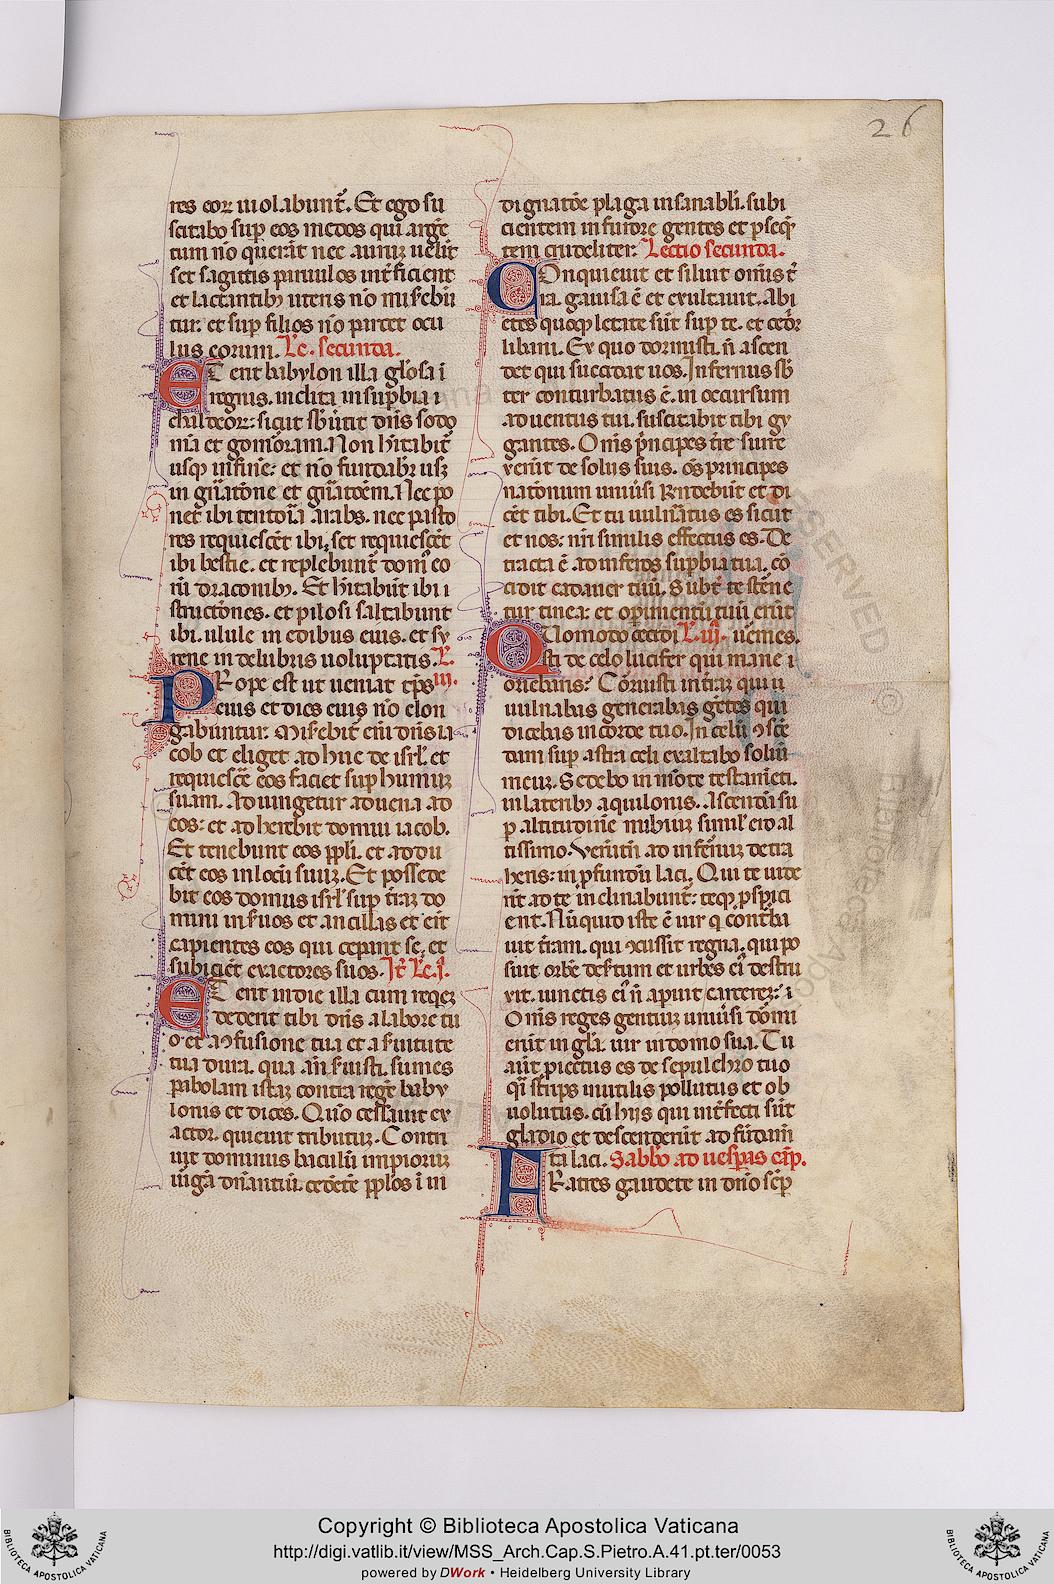 26
res eoꝝ uiolabunt᷑. Et ego su
scitabo suꝑ eos medos qui argē
tum nō querāt nec auruꝫ uelīt
set sagittis paruulos int᷑ficient
et lactantibꝫ uteris nō mis᷑ebū
tur. et suꝑ filios nō parcet ocu
lus eorum. Lc̄. secunda.
ET erit babylon illa gl̄osa ī
regnis. inclita in suꝑbia ī
chaldeoꝝ: sicut sb̄uertit dn̄s sodo
mā et gomorram. Non hītabit᷑
usqꝫ in finē: et nō fundabit᷑ usqꝫ
in gn̄atōne et gn̄atōem. Nec po
net ibi tentoria arabs. nec pasto
res requiescēt ibi. set requiescēt
ibi bestie. et replebunt᷑ dom᷒ eo
rū draconibꝫ. Et hītabūt ibi ī
structōnes. et pilosi saltabunt
ibi. ulule in edibus eius. et sy
rene in delubris uoluptatis. L̄.
PRope est ut ueniat tꝑs iij.
eius et dies eius nō elon
gabuntur. Mis᷑ebit᷑ eni dn̄s ia
cob et eliget adhuc de isrl̄. et
requiescē eos faciet suꝑ humuꝫ
suam. Adiungetur aduena ad
eos: et adherebit domui iacob.
Et tenebunt eos ppl̄i. et addu
cēt eos in locū suuꝫ. Et possede
bit eos domus isrl̄ suꝑ t᷑raꝫ do
mini in s᷑uos et ancillas et er̄t
capientes eos qui ceperant se. et
subiciēt exactores suos. It̄ Lc̄. j.
ET erit in die illa cum reqͥeꝫ
dederit tibi dn̄s a labore tu
o et a ꝯfusione tua et a s᷑uitute
tua dura. qua an̄ s᷑uisti. sumes
ꝑabolam istaꝫ contra regē baby
lonis et dices. Quō cessauit ex
actor. quieuit tributuꝫ. Contri
uit dominus baculū impioruꝫ
uirgā dn̄antiū. cedētē ppl̄os ī in
dignatōe plaga insanabl̄i. subi
cientem in furore gentes et ꝑseqͥ
tem crudeliter. Lectio secunda.
COnquieuit et siluit om̄is t᷑
ra. gauisa ē et exultauit. Abi
etes quoqꝫ letate sūt suꝑ te. et cedr᷑
libani. Ex quo dormisti. n̄ ascen
det qui succidat nos. Infernus sb̄
ter conturbatus ē. in occursum
aduentus tui. suscitabit tibi gy
gantes. Om̄is pͥncipes t᷑re surre
xerūt de soliis suis. oēs principes
nationum uniu᷑si rn̄debūt et di
cēt tibi. Et tu uuln᷑atus es sicut
et nos: nr̄i similis effectus es. De
tracta ē ad inferos suꝑbia tua. cō
cidit cadauer tuū. Subt᷑ te st᷑ne
tur tinea: et oꝑimentū tuū erūt
QUomodo cecidi L̄. iij. uermes.
sti de celo lucifer qui mane ī
oriebaris? Corruisti in t᷑raꝫ qui u
ulnabas generabas gētes qui
dicebas in corde tuo. In celū ꝯscē
dam suꝑ astra celi exaltabo soliū
meuꝫ. Sedebo in mōte testam̄ti.
in lateribꝫ aquilonis. Ascendā su
ꝑ altitudinē nubiuꝫ simil̄ ero al
tissimo. Verūtn̄ ad infernuꝫ detra
heris: in ꝓfundū laci. Qui te uide
rīt ad te inclinabunt᷑: teqꝫ ꝓspici
ent. Nūquid iste ē uir qͥ conturba
uit t᷑ram. qui ꝯcussit regna. qui po
suit orbē des᷑tum et urbes eī destru
xit. uinctis eī n̄ aperuit carcerē? i
Om̄is reges gentiuꝫ uniu᷑si dorm̄i
erūt in gl̄a. uir in domo sua. Tu
aūt ꝓiectus es de sepulchro tuo
qͣsi stirps inutilis pollutus et ob
uolutus. cū hijs qui int᷑fecti sūt
gladio et descenderūt ad fundam̄
FRta laci. Sabbō ad uesꝑas cap̄.
Ratres gaudete in dn̄o seꝑ
Copyright © Biblioteca Apostolica Vaticana
http://digi.vatlib.it/view/MSS_Arch.Cap.S.Pietro.A.41.pt.ter/0053
powered by DWork • Heidelberg University Library
BIBLIOTECA APOSTOLICA VATICANA
BIBLIOTECA APOSTOLICA VATICANA